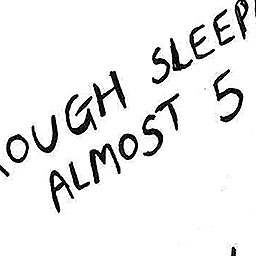 OUGH SLEEP
ALMOST 5